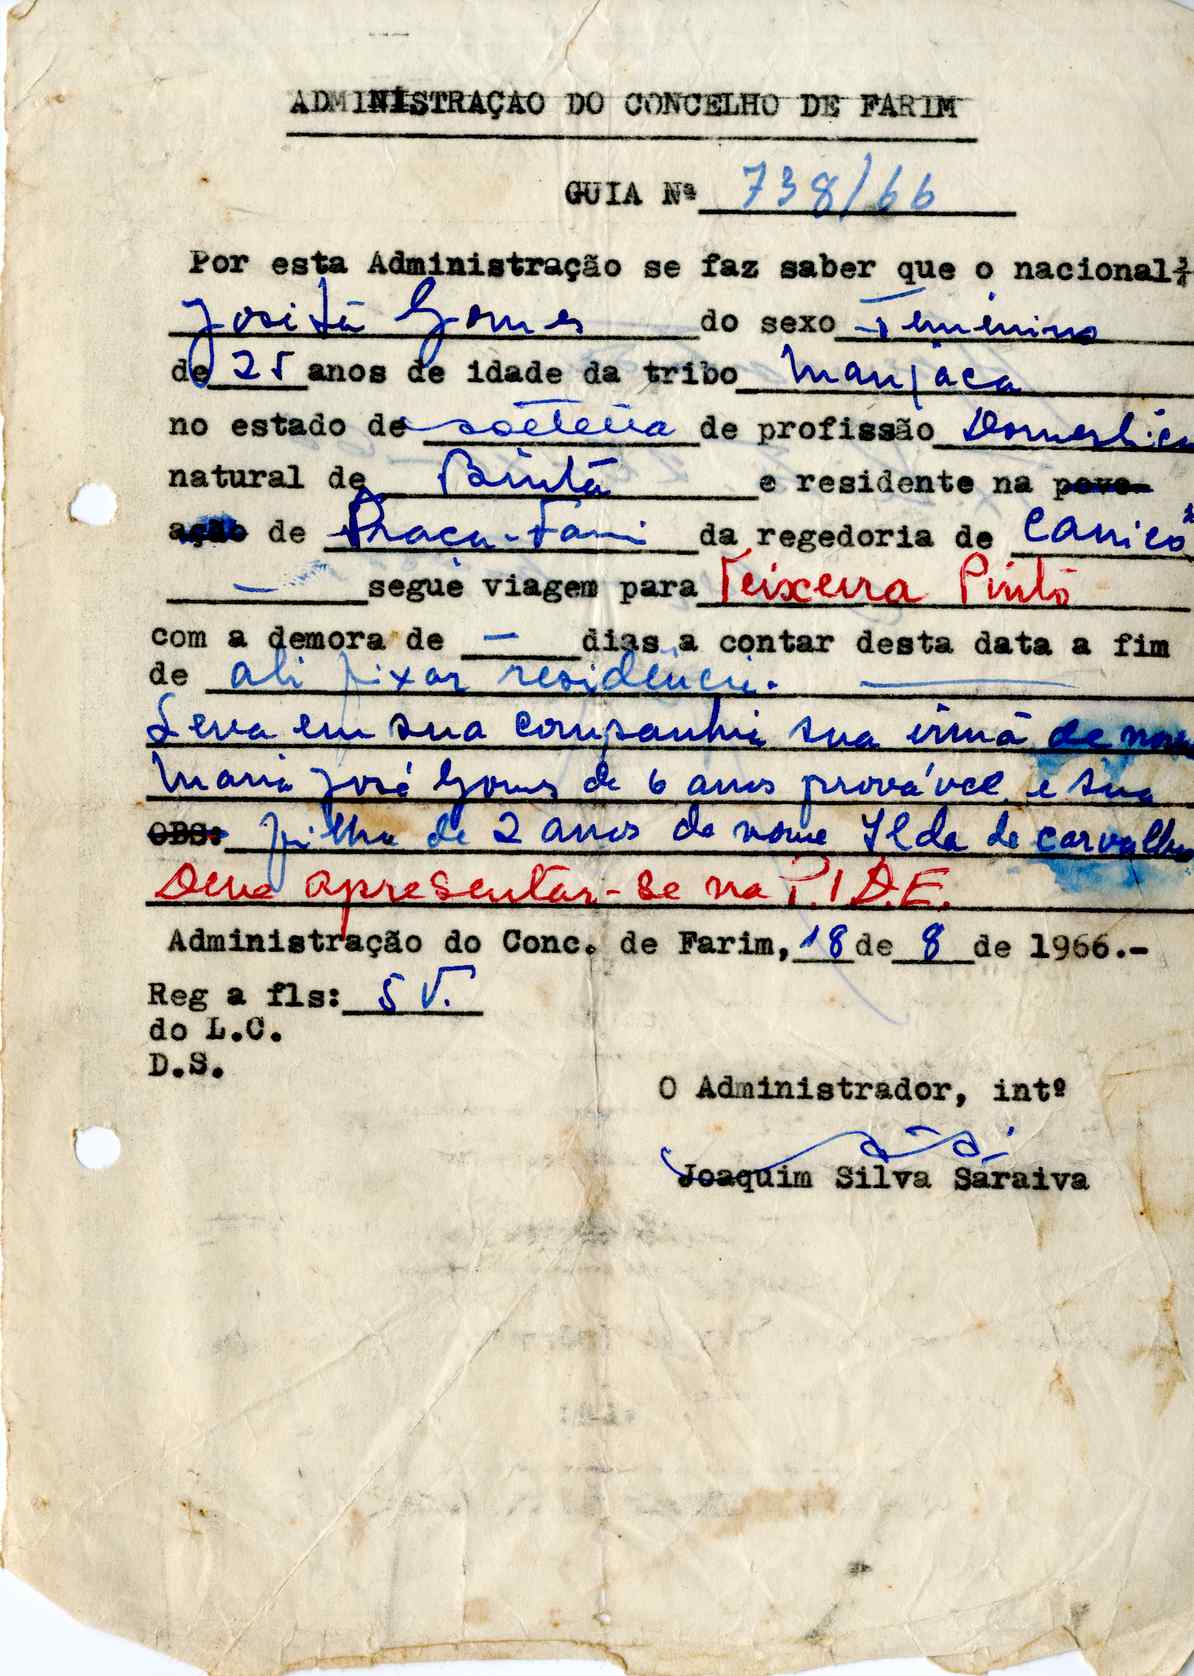 ADMINISTRAÇÃO DO CONCELHO DE FARIM
GUIA Nª 738/66
Por esta Administração se faz saber que o nacional
Jositã Gomes do sexo Feminino
de 25 anos de idade da tribo Manjaca
no estado de solteira de profissão Domestica
natural de Bintã e residente na povo-
ação de da regedoria de Canico
— segue viagem para Teixeira Pinto
com a demora de — dias a contar desta data a fim
de ali fixar residência. —
Leva em sua companhia sua irmã de nome
Maria José Gomes de 6 anos provável e sua
OBS: filha de 2 anos de nome Ilda de Carvalho
Deve apresentar-se na P.I.D.E.
Administração do Conc. de Farim, 18 de 8 de 1966.-
Reg a fls: 5 V.
do L.C.
D.S.
O Administrador, intº
Joaquim Silva Saraiva